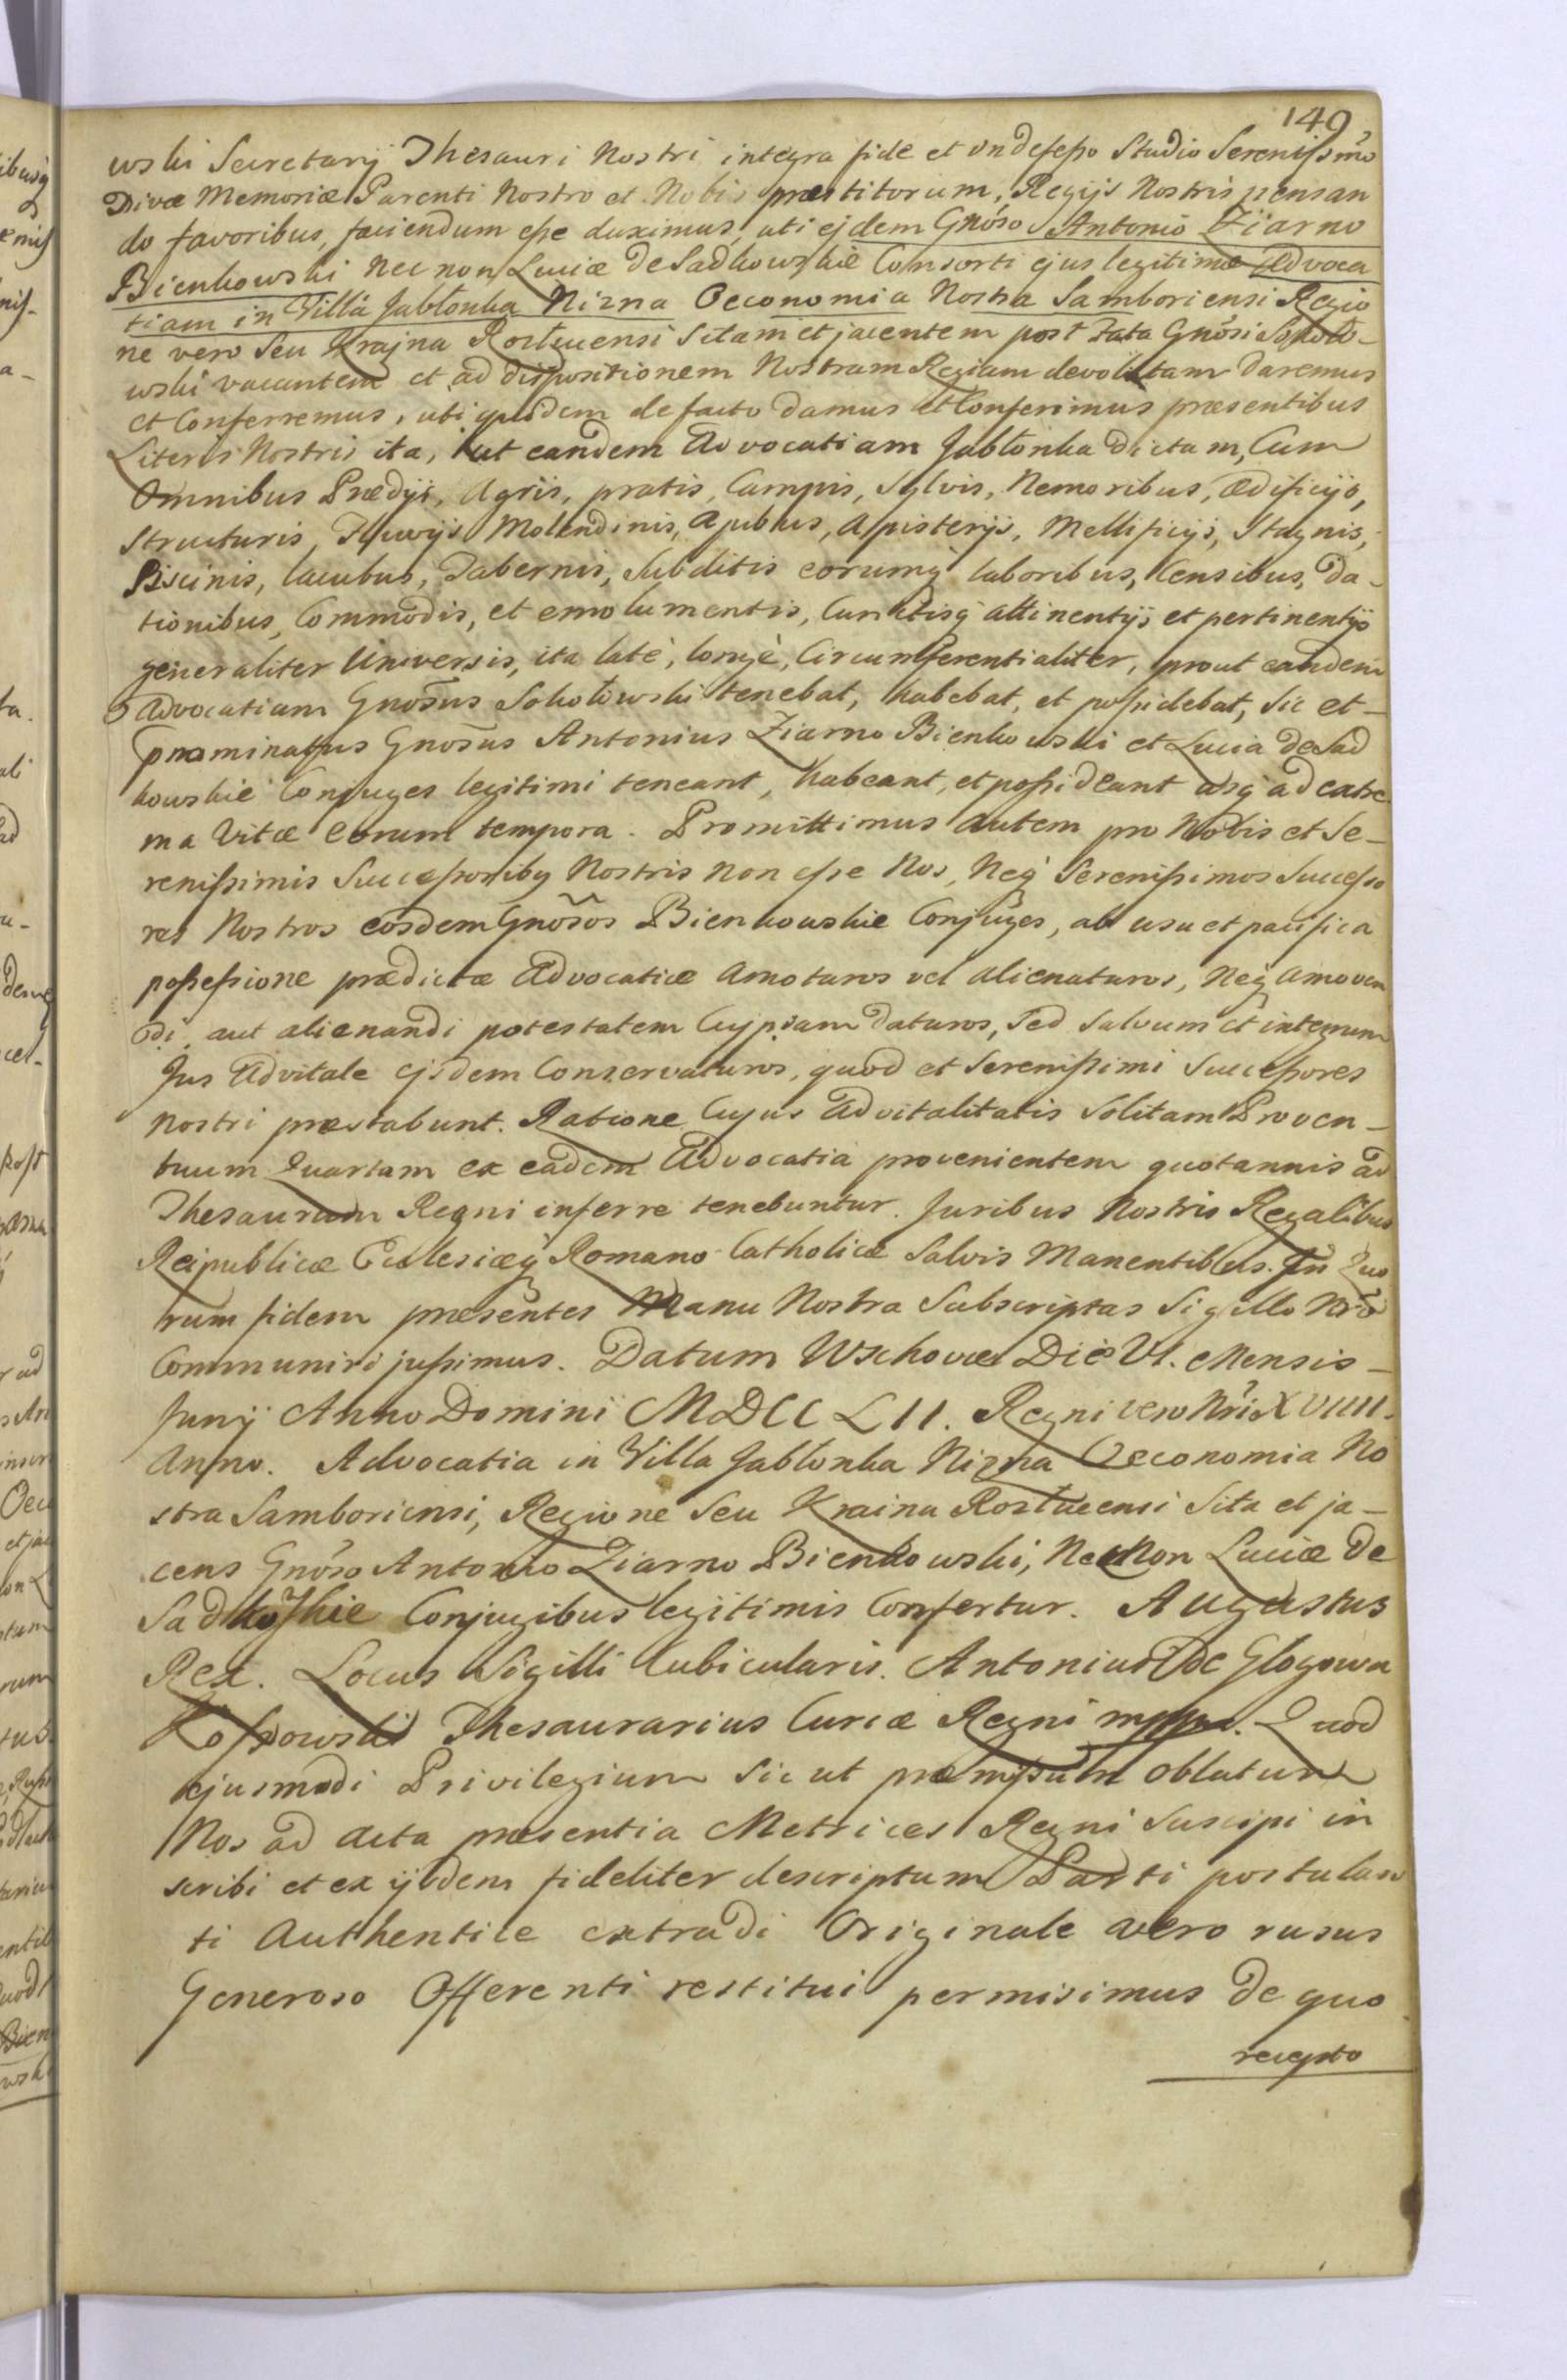 149
wski Secretarij Thesauri Nostri integra fide et indefesso Studio Serenissmo
Divæ Memoriæ Parenti Nostro et Nobis præstitorum, Regijs Nostris pensan
do favoribus, faciendum esse duximus, uti ejdem Gnoso Antonio Ziarno
Bienkowski necnon Luciæ de Sadkowskie Consorti ejus legitimæ Advoca
tiam in Villa Jabłonka Nizna Oeconomia Nostra Samboriensi Regio
ne vero Seu Krajna Roztucensi Sitam et jacentem post Fata Gnosi Sokoło-
wski vacantem et ad dispositionem Nostram Regiam devolutam daremus
et Conferremus, uti quidem de facto damus et Conferimus præsentibus
Literis Nostris ita, ut eandem Advocatiam Jabłonka dictam, Cum
Omnibus Prædijs, Agris, pratis, Campis, Sylvis, Nemoribus, ædificijs,
Structuris, Fluvijs Molendinis, Apibus, Apisterijs, Mellificijs, Stagnis,
Piscinis, lacubus, Tabernis, Subditis eorumq laboribus, Censibus, Da-
tionibus, Commodis, et emolumentis, Cunctisq attinentijs et pertinentijs
generaliter Universis, ita latè, longè, Circumferentialiter, prout eandem
Advocatiam Gnosus Sokołowski tenebat, habebat, et possidebat, sic et-
prænominatus Gnosus Antonius Ziarno Bienkowski et Lucia de Sad
kowskie Conjuges legitimi teneant, habeant, et possideant usq ad extre
ma Vitæ eorum tempora. Promittimus autem pro Nobis et Se-
renissimis Successoribq Nostris non esse Nos, Neq Serenissimos Successo
res Nostros eosdem Gnosos Bienkowskie Conjuges, ab usu et pacifica
possessione prædictæ Advocatiæ amoturos vel alienaturos, Neq amoven
di, aut alienandi potestatem Cujpiam daturos, Sed Salvum et integrum
Jus Advitale ejsdem Conservaturos, quod et Serenissimi Successores
nostri præstabunt. Ratione Cujus Advitalitatis Solitam Proven-
tuum Quartam ex eadem Advocatia provenientem quotannis ad
Thesaurum Regni inferre tenebuntur. Juribus Nostris Regalibus
Reipublicæ Ecclesiæq Romano Catholicæ Salvis Manentibus. In Quo
rum fidem præsentes Manu Nostra Subscriptas Sigillo Nro
Communiri jussimus. Datum Wschovæ Die VI. Mensis-
Junij Anno Domini MDCCLII. Regni vero Nri XVIIII.
Anno. Advocatia in Villa Jablonka Nizna Oeconomia No
stra Samboriensi, Regione Seu Kraina Roztucensi Sita et ja-
cens Gnoso Antonio Ziarno Bienkowski, Necnon Luciæ de
Sadkoskie Conjugibus legitimis Confertur. Augustus
Rex. Locus Sigilli Cubicularis. Antonius De Glogowa
Kossowski Thesaurarius Curiæ Regni mppa. Quod
ejusmodi Privilegium Sicut præmissum oblatum
Nos ad acta præsentia Metrices Regni Suscipi in
scribi et ex ijsdem fideliter descriptum Parti postulan
ti Authentice extradi Originale vero rusus
Generoso Offerenti restitui permisimus de quo
recepto